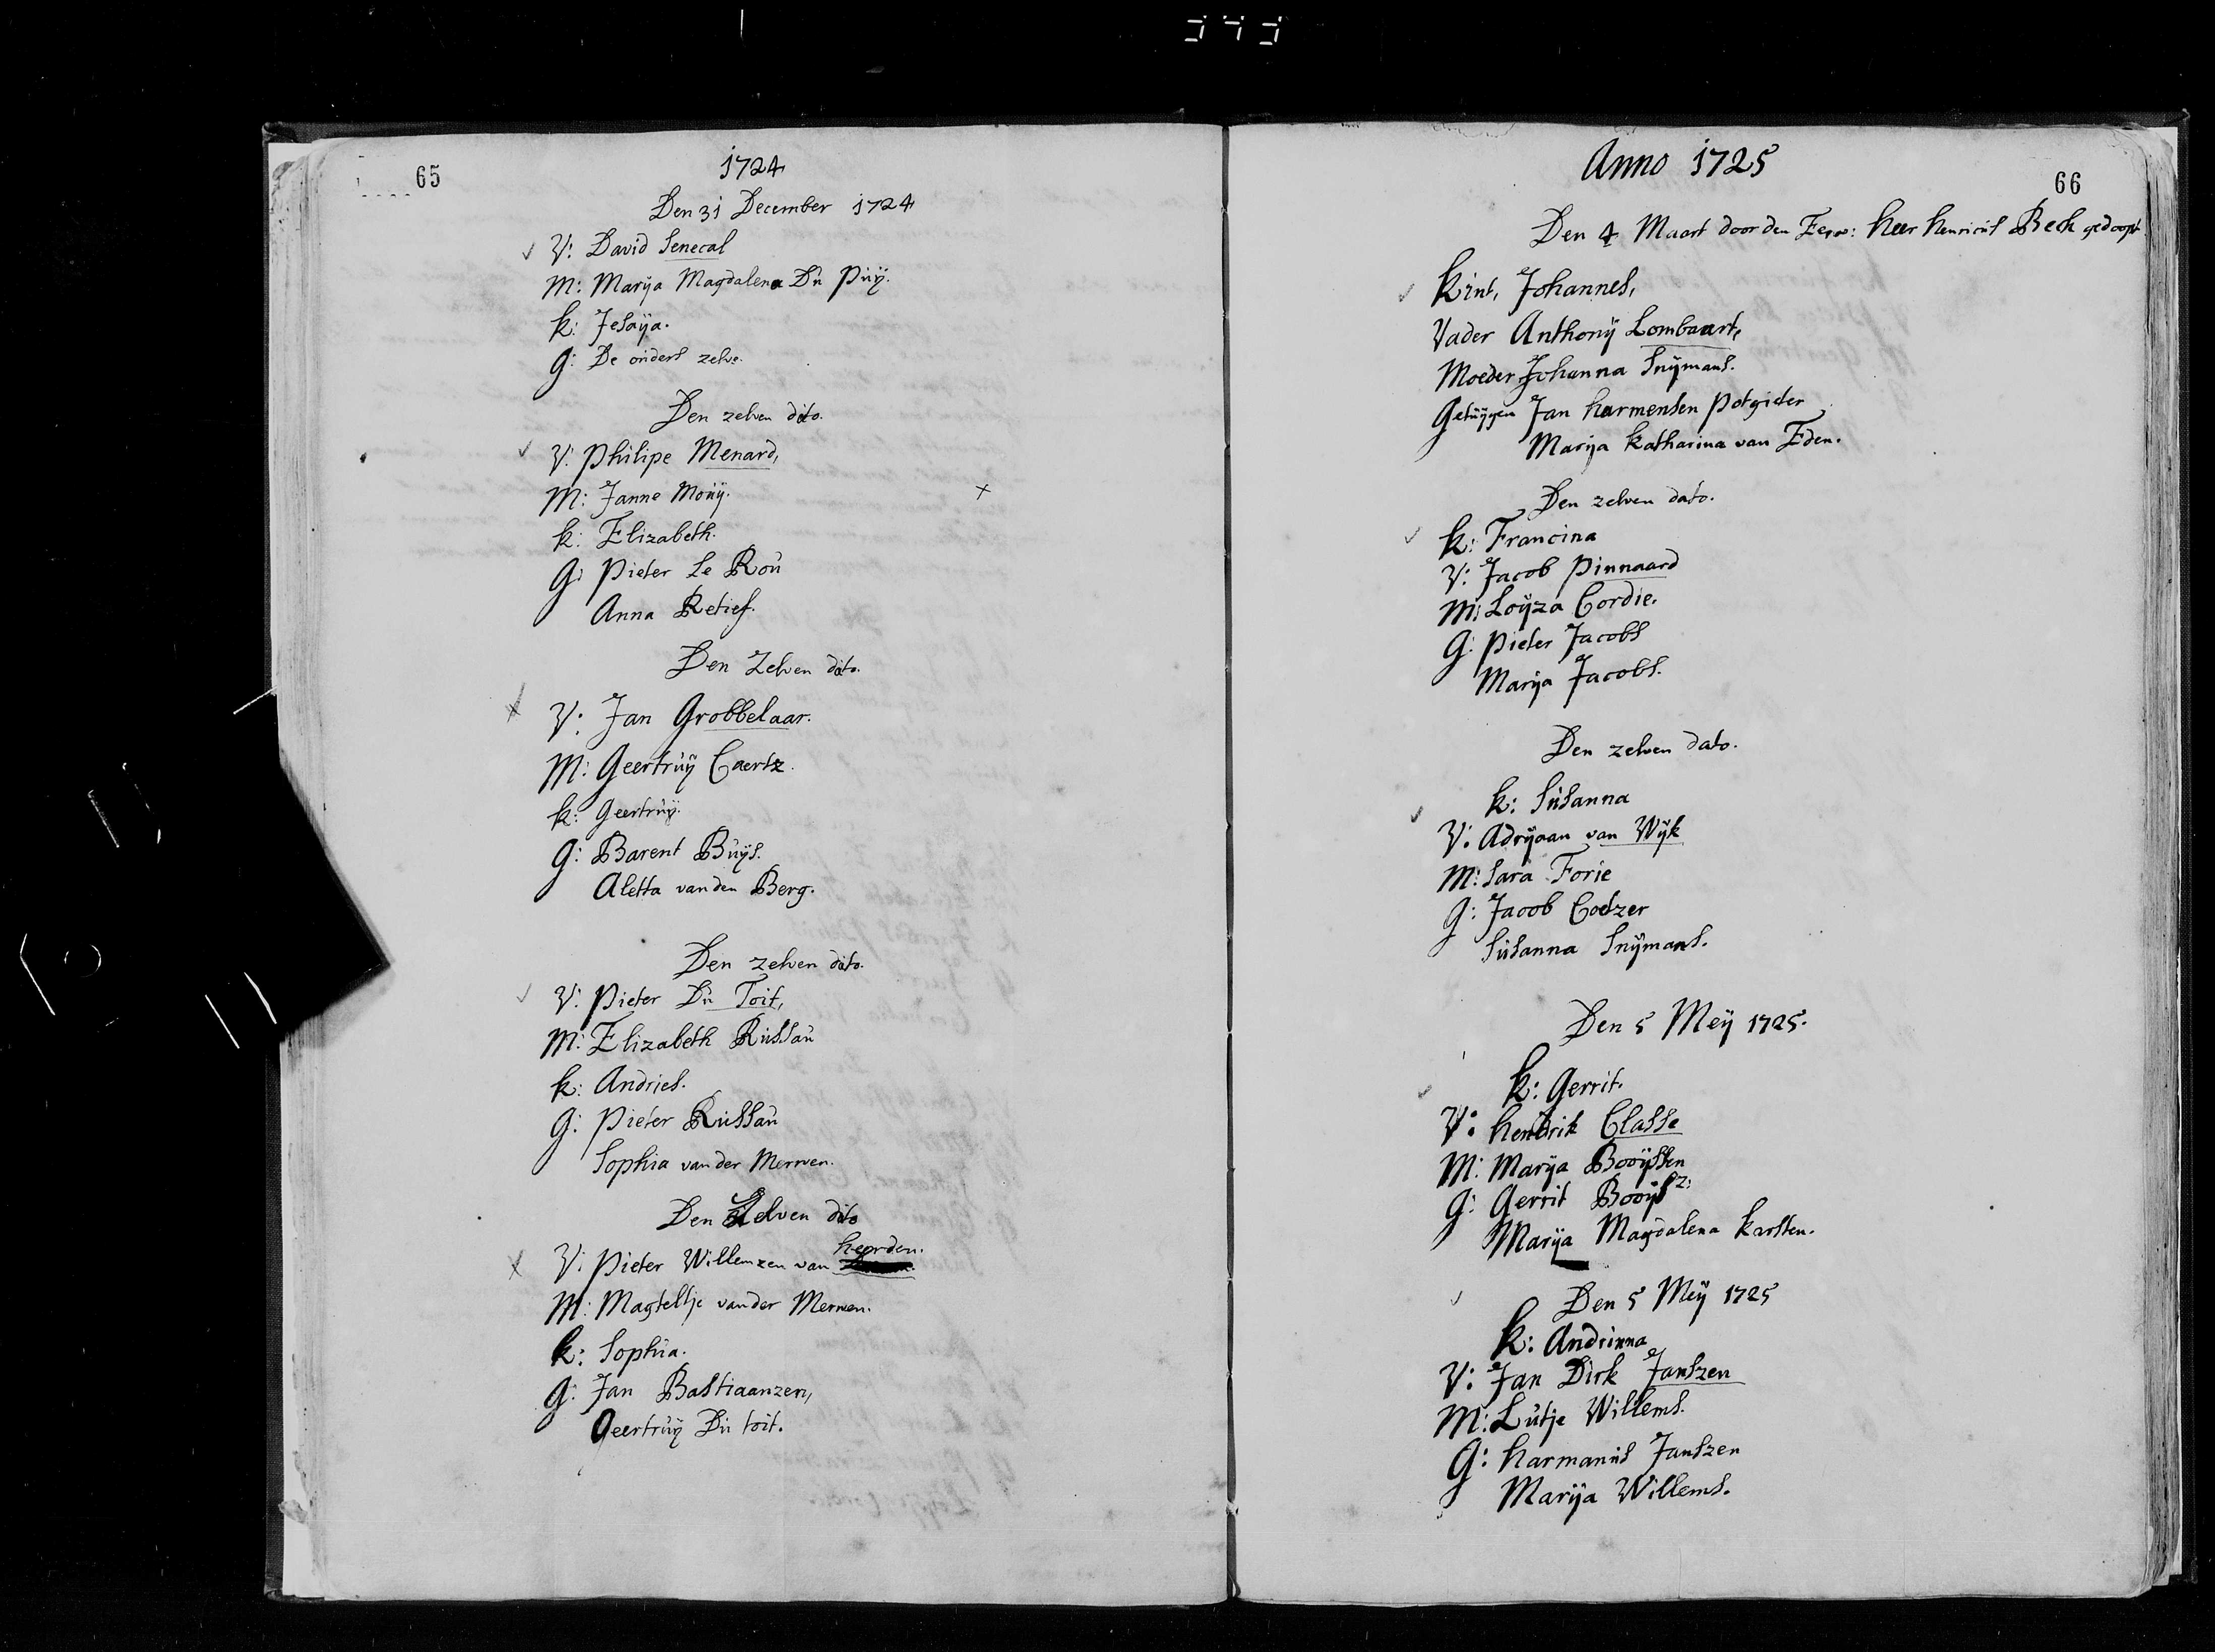 65
1724
Den 31 December 1724
V: David Senecal
M: Marÿa Magdalena Dù Pùÿ.
k: Jesaÿa.
G: De oùders zelve.
Den zelven dito.
V: Philipe Menard,
M: Janne Moùÿ.
k: Elizabeth.
G: Pieter Le Roù
Anna Retief.
Den Zelven dito.
V: Jan Grobbelaar.
M: Geertrùÿ Caertz.
k: Geertrùÿ.
G: Barent Bùÿs.
Aletta van den Berg.
Den zelven dito.
V: Pieter Dù Toit,
M: Elizabeth Rùssaù
k: Andries.
G: Pieter Rùssaù
Sophia van der Merwen.
Den Zelven dito
heerden.
V: Pieter Willemzen van
M: Magteltje van der Merwen.
k: Sophia.
G: Jan Bastiaanzen,
Geertrùÿ Dù toit.
Anno 1725
66
Den 4 Maart door den Eerw: heer henricùs Beck gedoopt
kint, Johannes,
Vader Anthonÿ Lombaart,
Moeder Johanna Snÿmans.
Getùÿgen Jan harmensen Potgieter
Marÿa katharina van Eden.
Den zelven dato.
k: Francina
V: Jacob Pinnaard
M: Loÿza Cordie.
G: Pieter Jacobs
Marÿa Jacobs.
Den zelven dato.
k: Sùsanna
V: Adrÿaan van Wÿk
M: Sara Forie
G: Jacob Coetzer
Sùsanna Snÿmans.
Den 5 Meÿ 1725.
k: Gerrit.
V: hendrik Classe
M: Marÿa Booÿssen
G: Gerrit Booÿs z:
Marÿa Magdalena karsten.
Den 5 Meÿ 1725
k: Andrinna
V: Jan Dirk Janszen
M: Lùtje Willems.
G: harmanùs Janszen
Marÿa Willems.